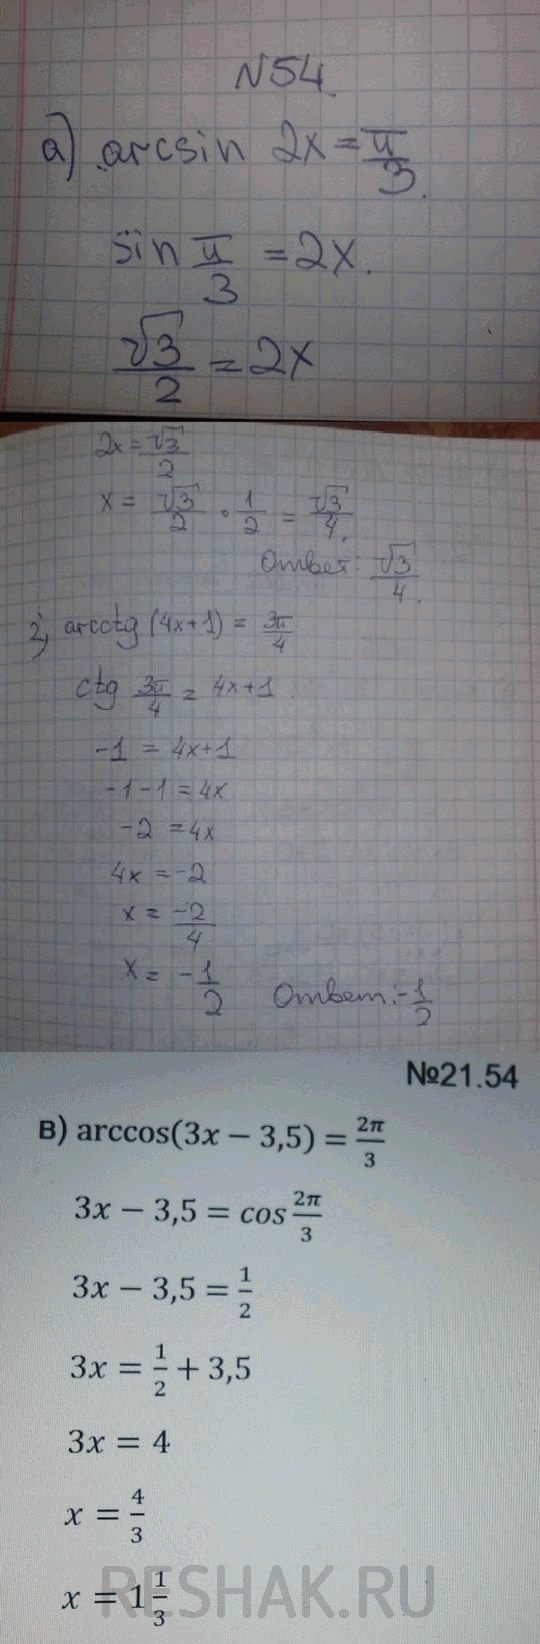 N54.
а) arcsin 2x = π/3.
sin π/3 = 2x.
√3/2 = 2x
2x = √3/2
x = √3/2 · 1/2 = √3/4.
Ответ: √3/4.
2) arcctg (4x+1) = 3π/4
ctg 3π/4 = 4x+1.
-1 = 4x+1
-1-1 = 4x
-2 = 4x
4x = -2
x = -2/4
x = -1/2 Ответ: -1/2
№21.54
в) arccos(3x − 3,5) = 2π/3
3x − 3,5 = cos 2π/3
3x − 3,5 = 1/2
3x = 1/2 + 3,5
3x = 4
x = 4/3
x = 1 1/3
RESHAK.RU